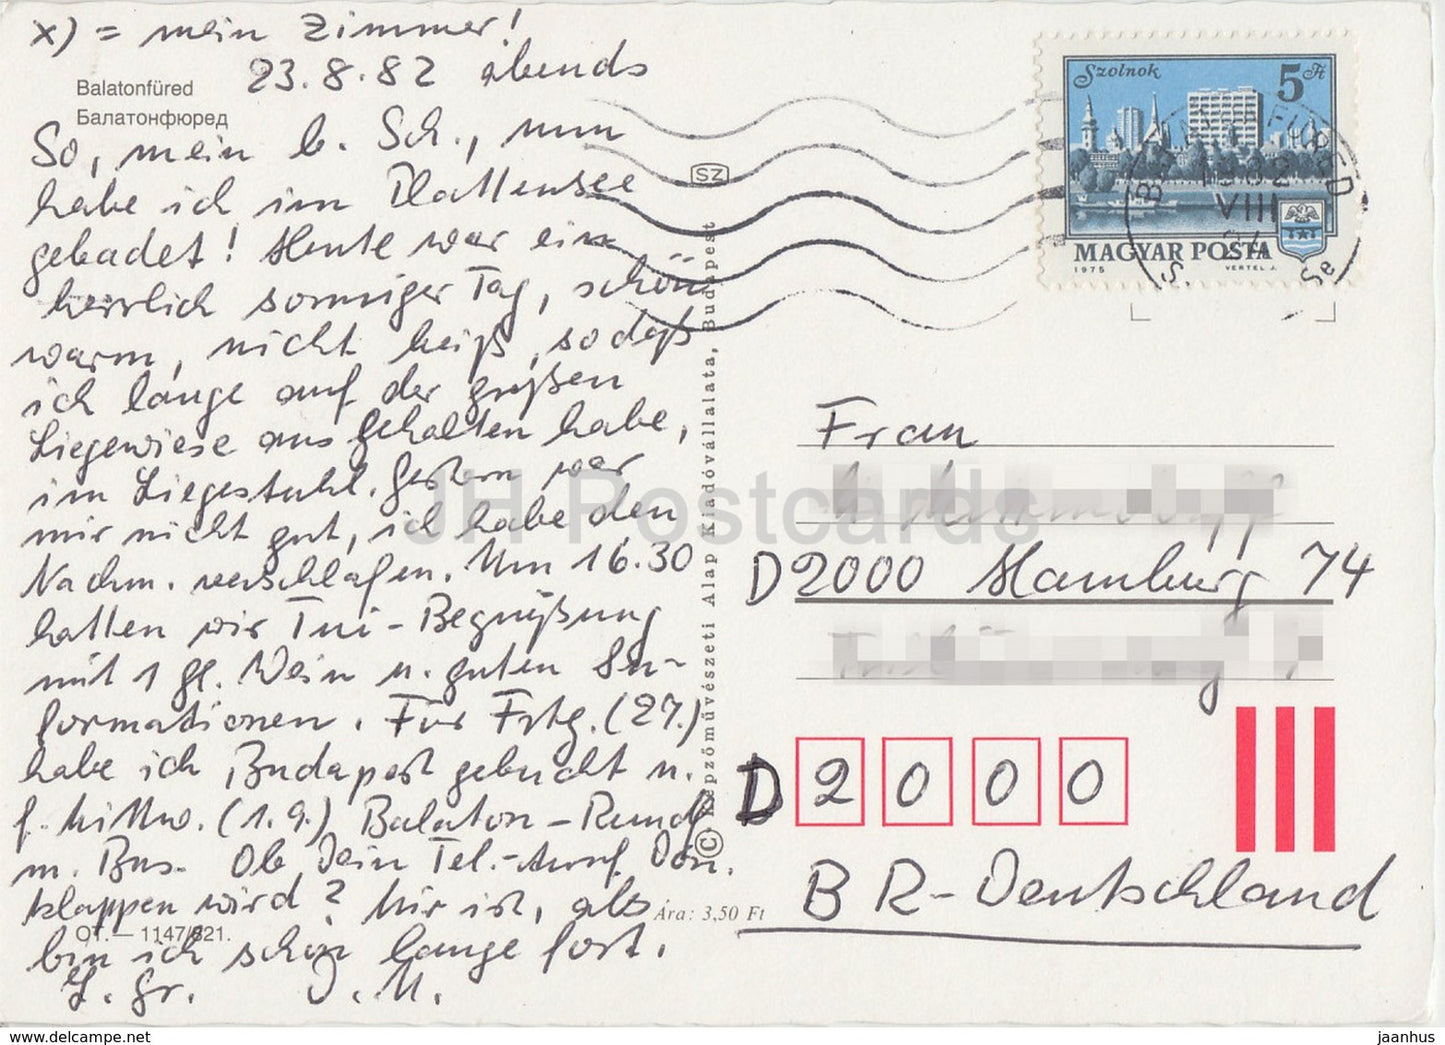 x) = mein Zimmer!
23.8.82 abends
Balatonfüred
Балатонфюред
So, mein l. Sch., nun
habe ich im Plattensee
gebadet! Heute war ein
herrlich sonniger Tag, schön
warm, nicht heiß, sodaß
ich lange auf der großen
Liegewiese ausgehalten habe,
im Liegestuhl. Gestern war
mir nicht gut, ich habe den
Nachm. verschlafen. Um 16.30
hatten wir Tui-Begrüßung
mit 1 Gl. Wein u. guten In-
formationen. Für Frtg. (27.)
habe ich Budapest gebucht u.
f. Mittw. (1.9.) Balaton-Rundf
m. Bus. Ob Dein Tel.-Anruf Don.
klappen wird? Mir ist, als
bin ich schon lange fort.
L. Gr. D. M.
OT. — 1147/821.
SZ
© Képzőművészeti Alap Kiadóvállalata, Budapest
Ára: 3,50 Ft
Szolnok
5 Ft
MAGYAR POSTA
1975
VERTEL J.
BALATONFÜRED
1982
VIII
24
Frau
D 2000 Hamburg 74
D 2 0 0 0
BR-Deutschland
JH Postcards
https://www.delcampe.net
jaanhus